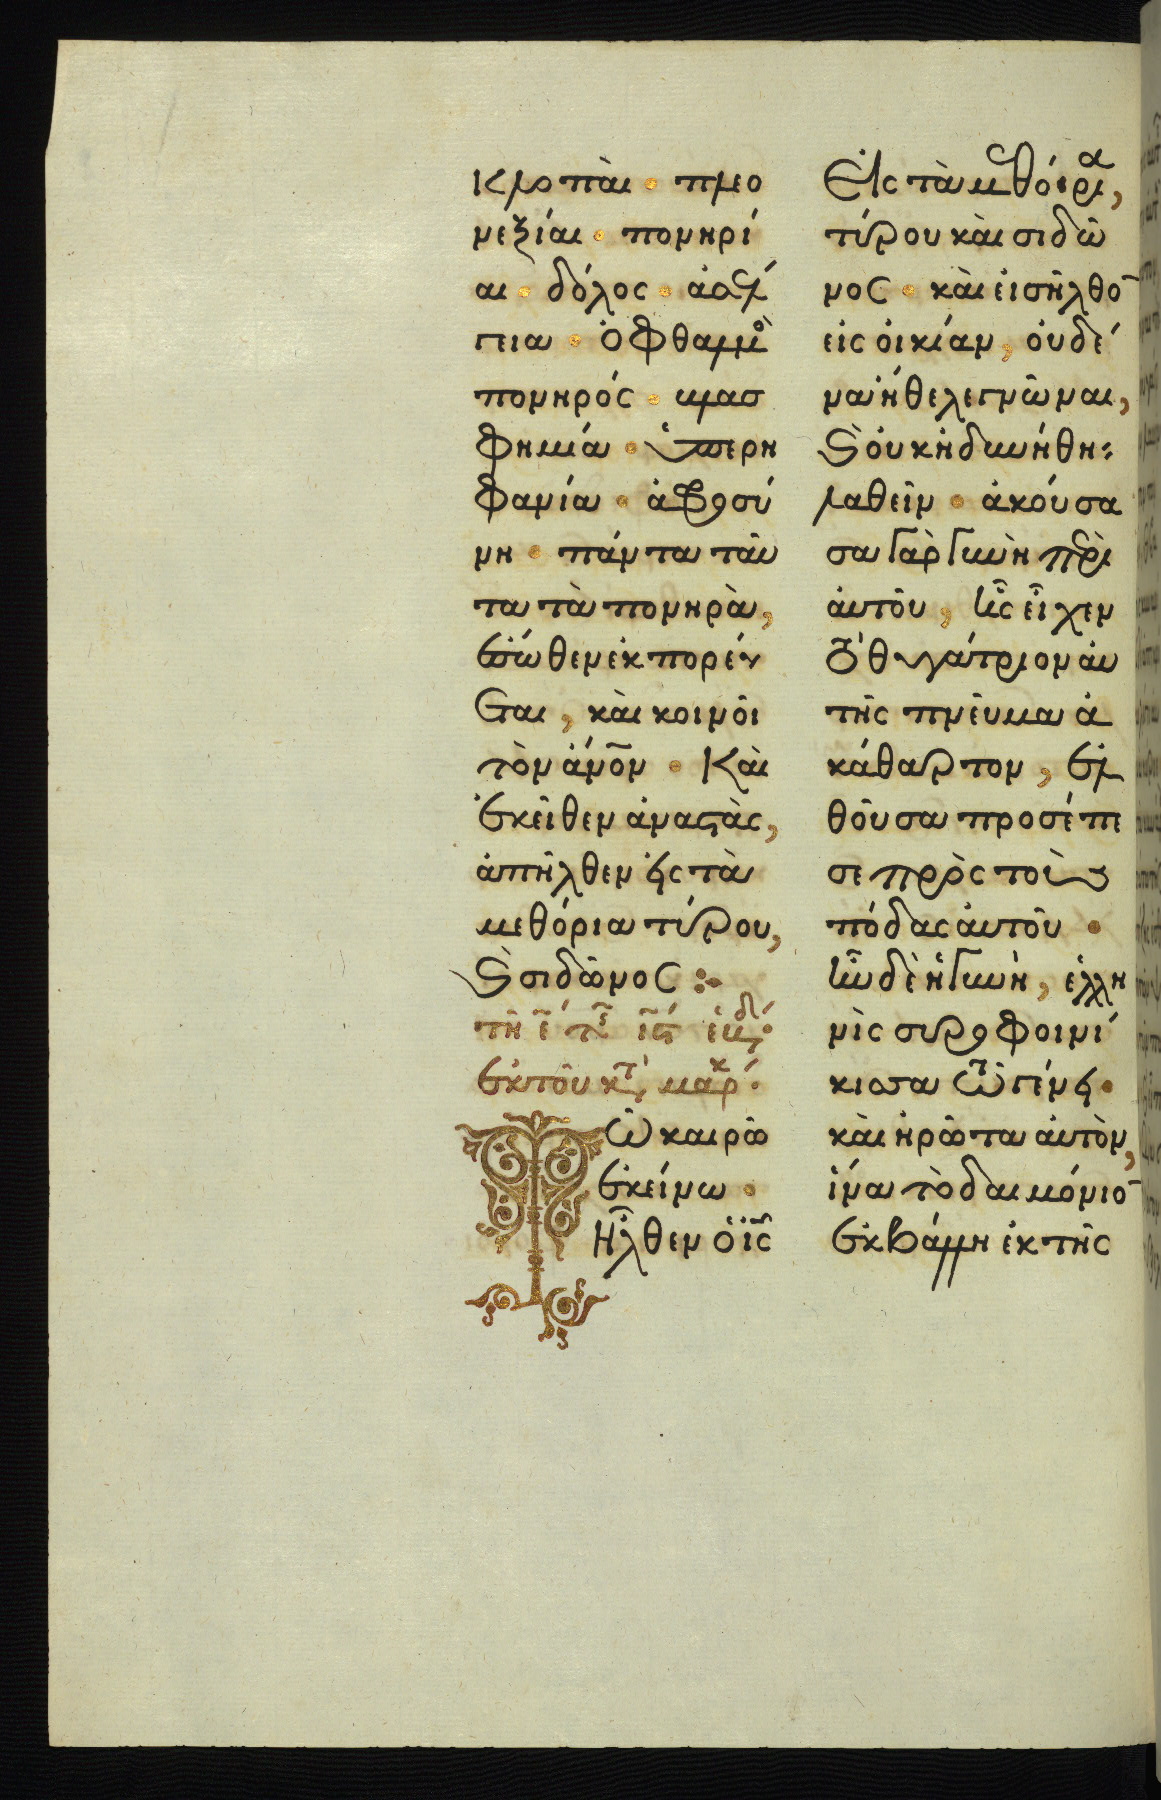 κλοπαὶ · πλεο
νεξίαι · πονηρί
αι · δόλος · ἀσέλ
γεια · ὀφθαλμὸ
πονηρός · βλασ
φημία · ὑπερη
φανία · ἀφροσύ
νη · πάντα ταῦ
τα τὰ πονηρὰ,
ἔσωθεν ἐκπορεύε
ται, καὶ κοινοῖ
τὸν ἄνον · Καὶ
ἐκεῖθεν ἀναστὰς,
ἀπῆλθεν εἰς τὰ
μεθόρια τύρου,
καὶ σιδῶνος :·
τῇ
ἐκ τοῦ κτ μαρκ ·
Τῶ καιρῶ
ἐκείνω ·
Ἦλθεν ὁ ις
Εἰς τὰ μεθόρια,
τύρου καὶ σιδῶ
νος · καὶ εἰσῆλθο
εἰς οἰκίαν, οὐδέ
να ἤθελε γνῶναι,
καὶ οὐκ ἠδυνήθη
λαθεῖν · ἀκούσα
σα γὰρ γυνὴ περὶ
αὐτοῦ, ἧς εἶχεν
τὸ θυγάτριον αὐ
τῆς πνεῦμα ἀ
κάθαρτον, ἐλ
θοῦσα προσέπε
σε πρὸς τοὺς
πόδας αὐτοῦ ·
ἦν δὲ ἡ γυνὴ, ἑλλη
νὶς συροφοινί
κισσα τῶ γένει ·
καὶ ἠρώτα αὐτὸν,
ἵνα τὸ δαιμόνιο
ἐκβάλλη ἐκ τῆς